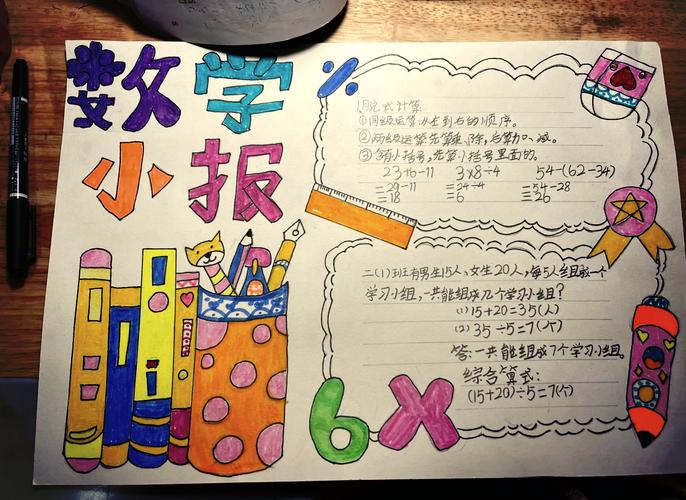 数学
小报
%
1.脱式计算
①同级运算从左到右的顺序。
②两级运算先算乘、除,后算加、减。
③有小括号,先算小括号里面的。
23+6-11 3×8÷4 54-(62-34)
=29-11 =24÷4 =54-28
=18 =6 =26
二(1)班有男生15人,女生20人,每5人组成一个
学习小组,一共能组成几个学习小组?
(1) 15+20=35(人)
(2) 35÷5=7(个)
答:一共能组成7个学习小组。
综合算式:
(15+20)÷5=7(个)
6 ×